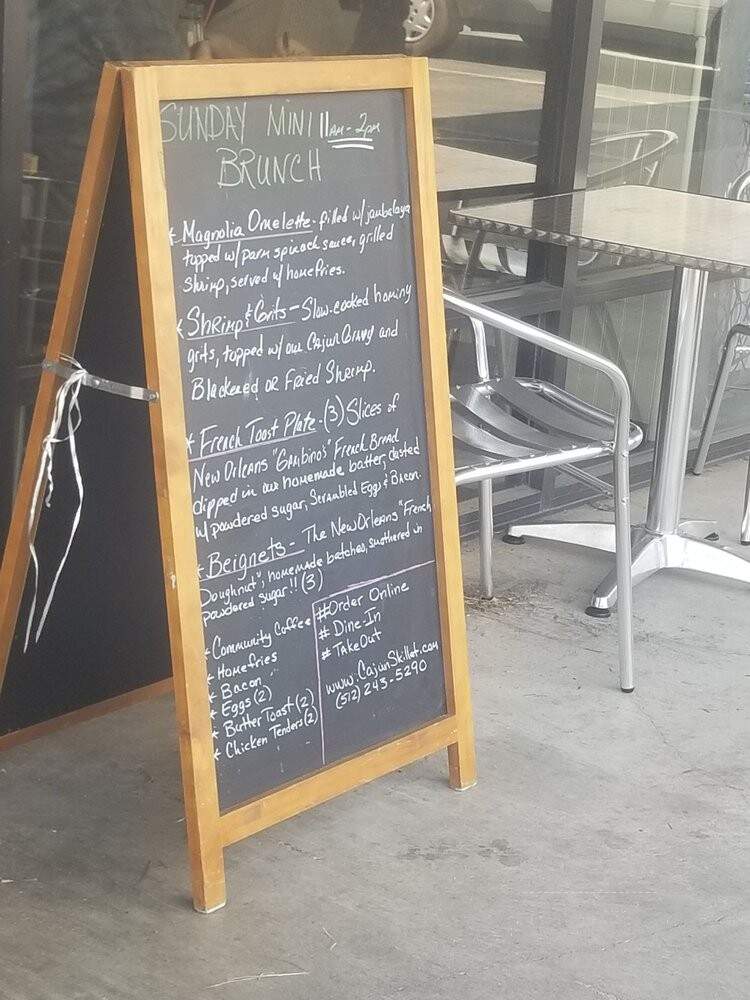 SUNDAY MINI 11AM - 2pm
BRUNCH
* Magnolia Omelette - filled w/ jambalaya
topped w/ parm spinach sauce, grilled
shrimp, served w/ homefries.
* Shrimp & Grits - Slow-cooked hominy
grits, topped w/ our Cajun Gravy and
Blackened or Fried Shrimp.
* French Toast Plate - (3) Slices of
New Orleans "Gambino's" French Bread
dipped in our homemade batter, dusted
w/ powdered sugar, Scrambled Eggs & Bacon.
* Beignets - The New Orleans "French
Doughnut", homemade batches, smothered in
powdered sugar!! (3)
* Community Coffee
* Homefries
* Bacon
* Eggs (2)
* Butter Toast (2)
* Chicken Tenders (2)
#Order Online
# Dine-In
# TakeOut
www.CajunSkillet.com
(512) 243-5290